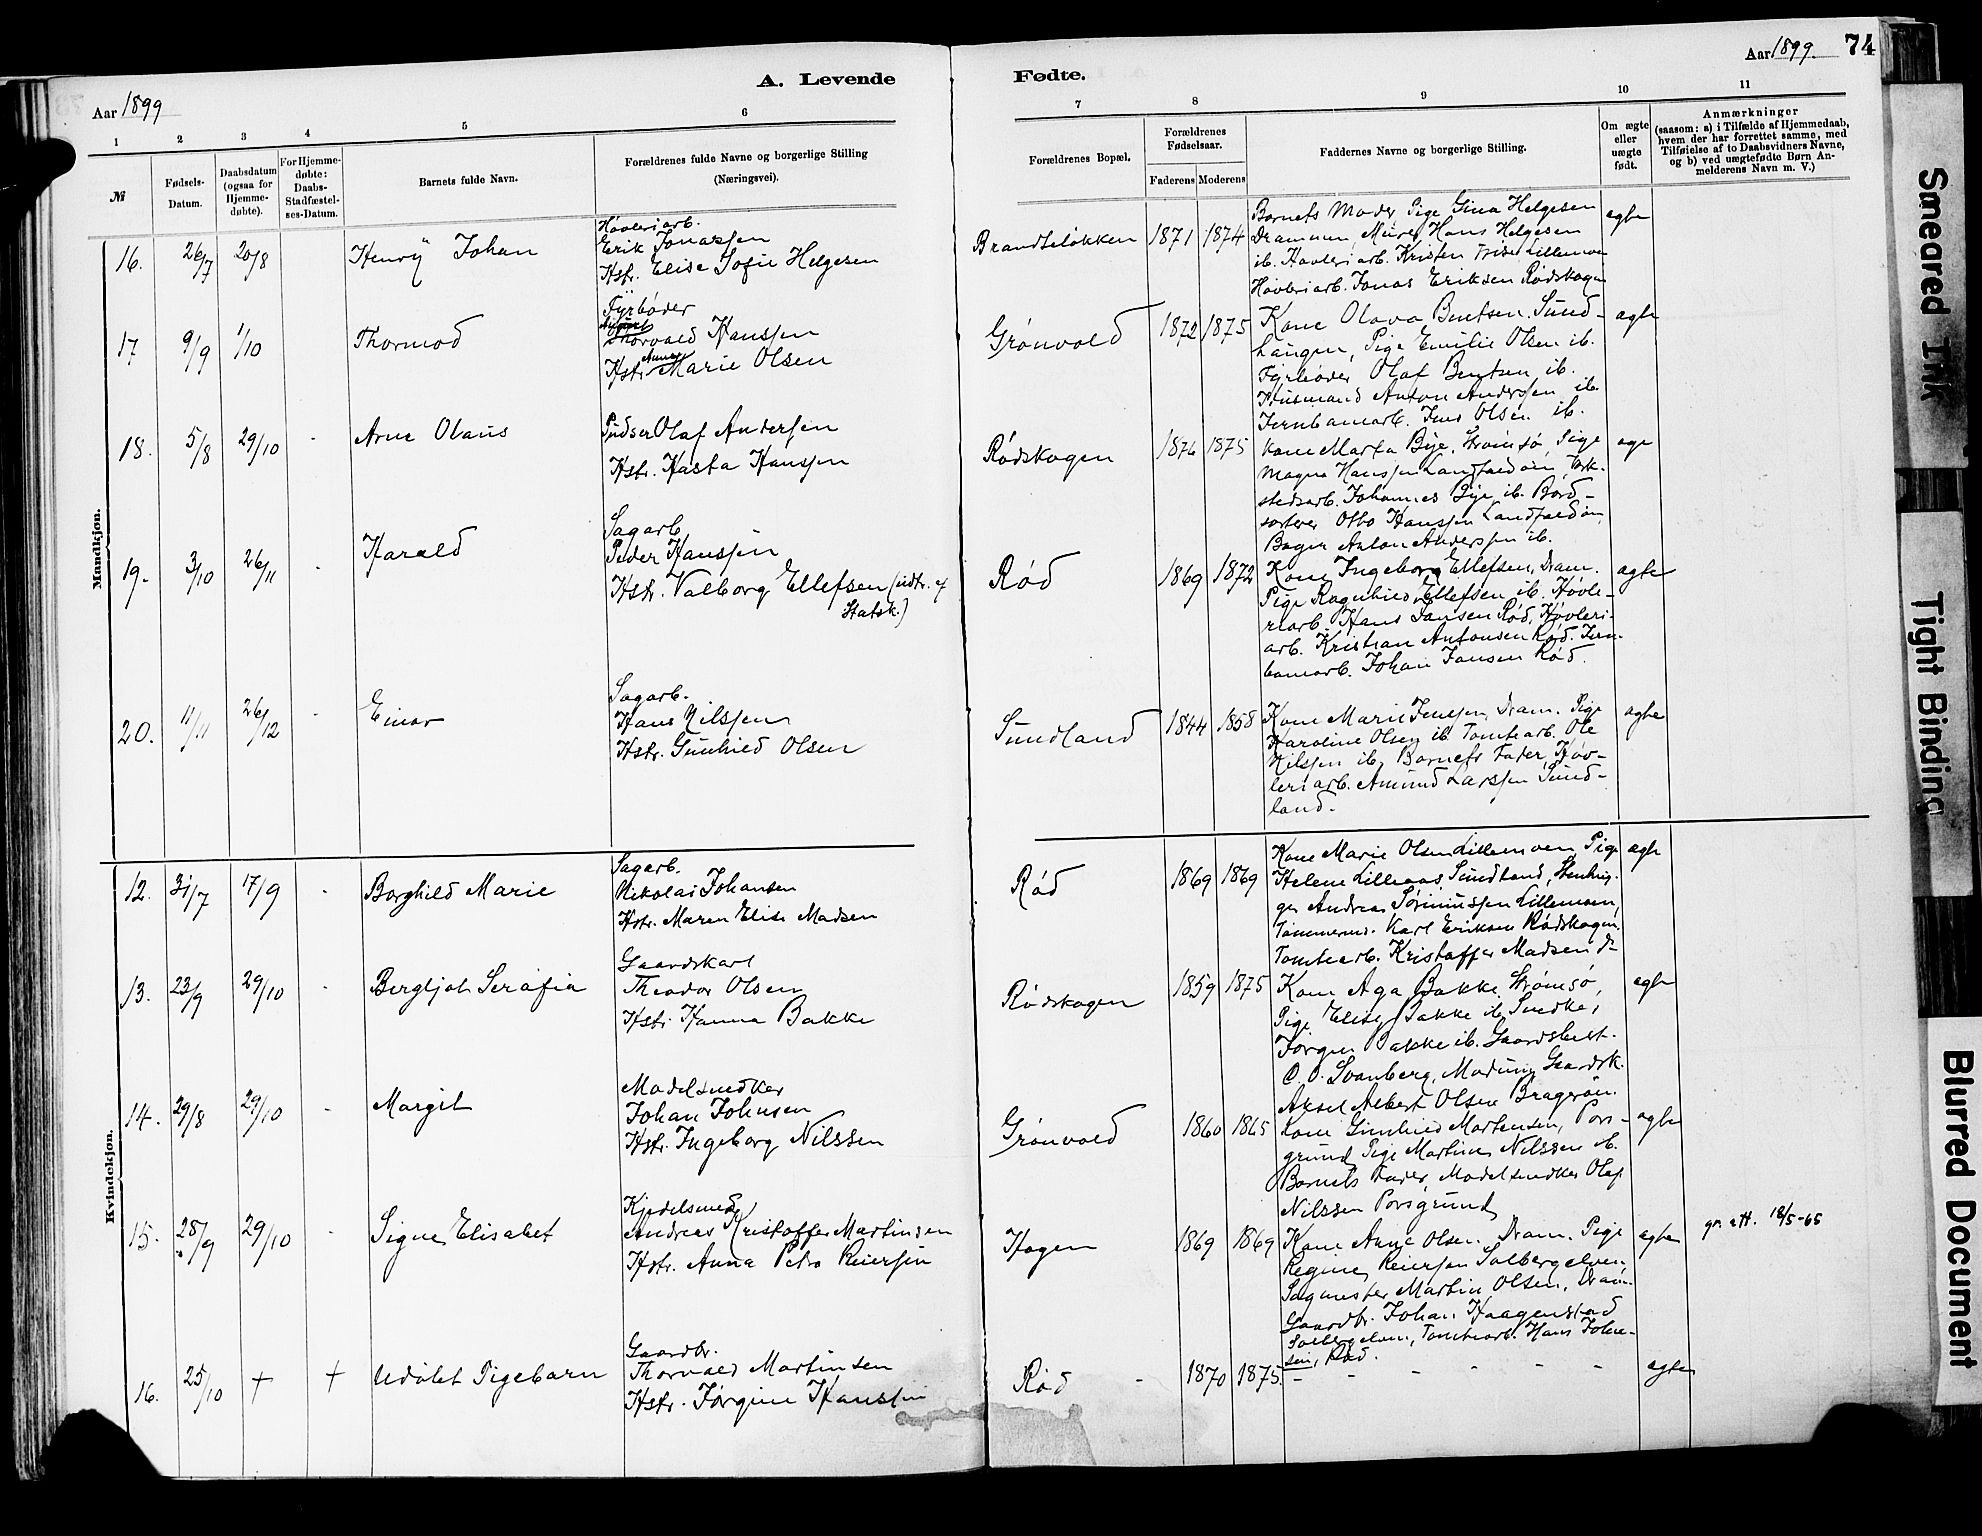 Aar 1899
A. Levende
Fødte.
Aar 1899. 74
1 2 3 4 5 6
7 8 9 10 11
№
Fødsels-
Datum.
Daabsdatum
(ogsaa for
Hjemme-
døbte).
For Hjemme-
døbte:
Daabs-
Stadfæstel-
ses-Datum.
Barnets fulde Navn.
Forældrenes fulde Navne og borgerlige Stilling
(Næringsvei).
Forældrenes Bopæl.
Forældrenes
Fødselsaar.
Faderens Moderens
Faddernes Navne og borgerlige Stilling.
Om ægte
eller
uægte
født.
Anmærkninger
(saasom: a) i Tilfælde af Hjemmedaab,
hvem der har forrettet samme, med
Tilføielse af to Daabsvidners Navne,
og b) ved uægtefødte Børn An-
melderens Navn m. V.)
Mandkjøn.
16. 26/7 20/8 Henrÿ Johan
Høvleriarb.
Erik Jonassen
Hstr. Elise Sofie Helgesen
Brandteløkken 1871 1874
Barnets Moder, Pige Gina Helgesen
Drammen, Murer Hans Helgesen
ib. Høvleriarb. Kristen Friis Lillemoen
Høvleriarb. Jonas Eriksen Rødskogen
ægte
17 9/9 1/10 Thormod
Fyrbøder
Thorvald Hanssen
Hstr. Anna Marie Olsen
Grønvold 1872 1875
Kone Olava Bentsen. Sund-
haugen, Pige Emilie Olsen ib.
Fyrbøder Olaf Bentsen ib.
Husmand Anton Andersen ib.
Jernbanearb. Jens Olsen ib.
ægte
18. 5/8 29/10 - Arne Olaus
Pudser Olaf Andersen
Hstr. Hasta Hanssen
Rødskogen 1876 1875
Kone Marta Bye, Strømsø, Pige
Magna Hanssen Landfaldøen, Verk-
stedsarb. Johannes Bye ib. Bord-
sorterer Otto Hanssen Landfaldøen,
Bager Anton Anderssen ib.
19. 3/10 26/11 - Harald
Sagarb.
Peder Hanssen
Hstr. Valborg Ellefsen (udtr. af
Statsk.)
Rød 1869 1872
Kone Ingeborg Ellefsen, Dram.
Pige Ragnhild Ellefsen ib. Høvle-
riarb. Hans Jansen Rød, Høvleri-
arb. Kristian Antonsen Rød. Jern-
banearb. Johan Jansen Rød.
ægte
20. 11/11 26/12 - Einar
Sagarb.
Hans Nilssen
Hstr. Gunhild Olsen
Sundland 1844 1858
Kone Marie Jenssen, Dram. Pige
Karoline Olsen ib. Tomtearb. Ole
Nilssen ib, Barnets Fader, Høv-
leriarb. Amund Larssen Sund-
land.
ægte
Kvindekjøn.
12. 31/7 17/9 - Borghild Marie
Sagarb.
Nikolai Johansen
Hstr. Maren Elise Madsen
Rød 1869 1869
Kone Marie Olsen Lillemoen, Pige
Helene Lilleaas, Sundland, Stenhug-
ger Andreas Sørinussen Lillemoen,
Tømmerm. Karl Eriksen Rødskogen,
Tomtearb. Kristoffer Madsen
ægte
13. 23/9 29/10 - Bergljot Serafia
Gaardskarl
Theodor Olsen
Hstr. Hanna Bakke
Rødskogen 1859 1875
Kone Aga Bakke, Strømsø,
Pige Elise Bakke ib. Smedke,
Jørgen Bakke ib. Gaardsbest.
O. O. Svanberg, Modum, Gaardsk.
Aksel Albert Olsen Bragerøen.
ægte
14. 29/8 29/10 - Margit
Modelsnedker
Johan Johnsen
Hstr. Ingeborg Nilssen
Grønvold 1860 1865
Kone Gunhild Mortensen, Pors-
grund, Pige Martine Nilssen ib.
Barnets Fader, Modelsnedker Olaf
Nilssen Porsgrund,
ægte
15. 28/9 29/10 - Signe Elisabet
Kjedelsmed
Andreas Kristoffer Martinsen
Hstr. Anna Petra Reiersen
Hagen 1869 1869
Kone Anne Olsen. Dram. Pige
Regine Reiersen Solbergelven,
Sagmester Martin Olsen, Dram-
Gaardbr. Johan Haagenstad
Solbergelven, Tomtearb. Hans John-
sen, Rød.
ægte gr. att. 18/5-65
16. 25/10 + + Udøbt Pigebarn
Gaardbr.
Thorvald Martinsen
Hstr. Jørgine Hanssen
Rød - 1870 1875. - - - - -
ægte
Smeared Ink
Tight Binding
Blurred Document